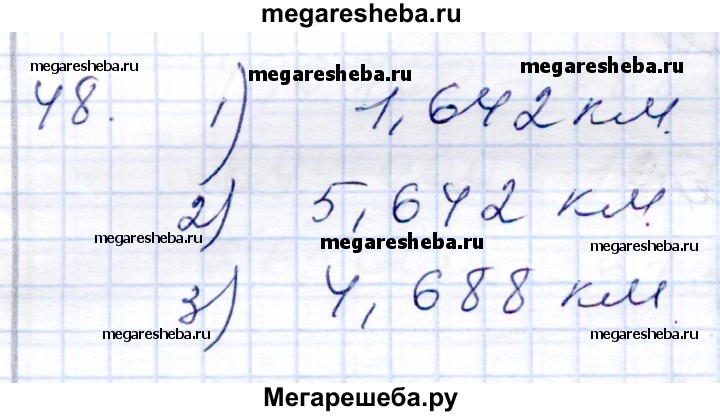 megaresheba.ru
megaresheba.ru megaresheba.ru megaresheba.ru
48. 1) 1,642 км.
2) 5,642 км.
megaresheba.ru megaresheba.ru megaresheba.ru
3) 4,688 км.
megaresheba.ru megaresheba.ru megaresheba.ru
Мегарешеба.ру